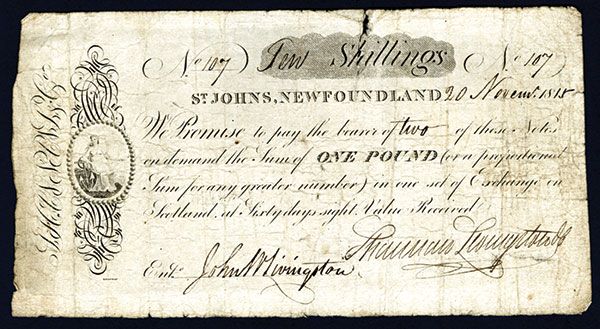 (No 107) Ten Shillings (No 107)
ST JOHNS, NEWFOUNDLAND 20 Novemr 1815
We Promise to pay the bearer of two of these Notes
on demand the Sum of ONE POUND (or a proportionate
Sum for any greater number) in one set of Exchange on
Scotland, at Sixty days sight, Value Received
Entd. John Livingston